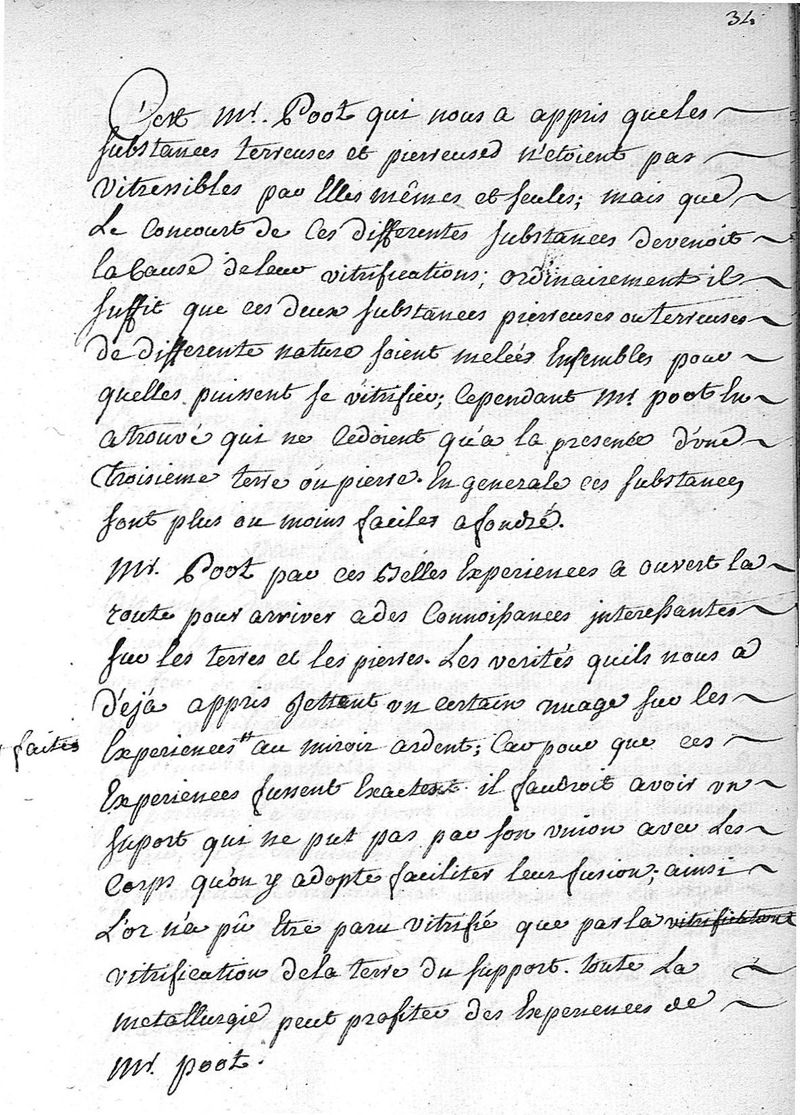 34
C'est Mr. Poot qui nous a appris que les
substances terreuses et pierreuses n'etoient pas
vitressibles par Elles mêmes et seules; mais que
Le Concourt de Ces differentes substances devenoit
la Cause de leur vitrifications; ordinairement il
suffit que ces deux substances pierreuses ou terreuses
de differente nature soient melées Ensembles pour
quelles puissent se vitrifier; Cependant Mr. poot En
a trouvé qui ne Cedoient qu'a la presence d'une
troisieme terre ou pierre. En generale ces substances
sont plus ou moins faciles a fondré.
Mr. Poot par ces Belles Experiences a ouvert la
route pour arriver a des Connoissances interessantes
sur les terres et les pierres. Les verités quils nous a
d'éjà appris Jettent un certain nuage sur les
faites
Experiences # au miroir ardent; Car pour que ces
Experiences fussent Exactes il faudroit avoir un
suport qui ne put pas par son union avec Les
Corps qu'on y adopte faciliter leur fusion; ainsi
L'or n'a pû Etre paru vitrifié que par la vitrifications
vitrification de la terre du support. toute La
metallurgie peut profiter des Experiences de
Mr. poot.